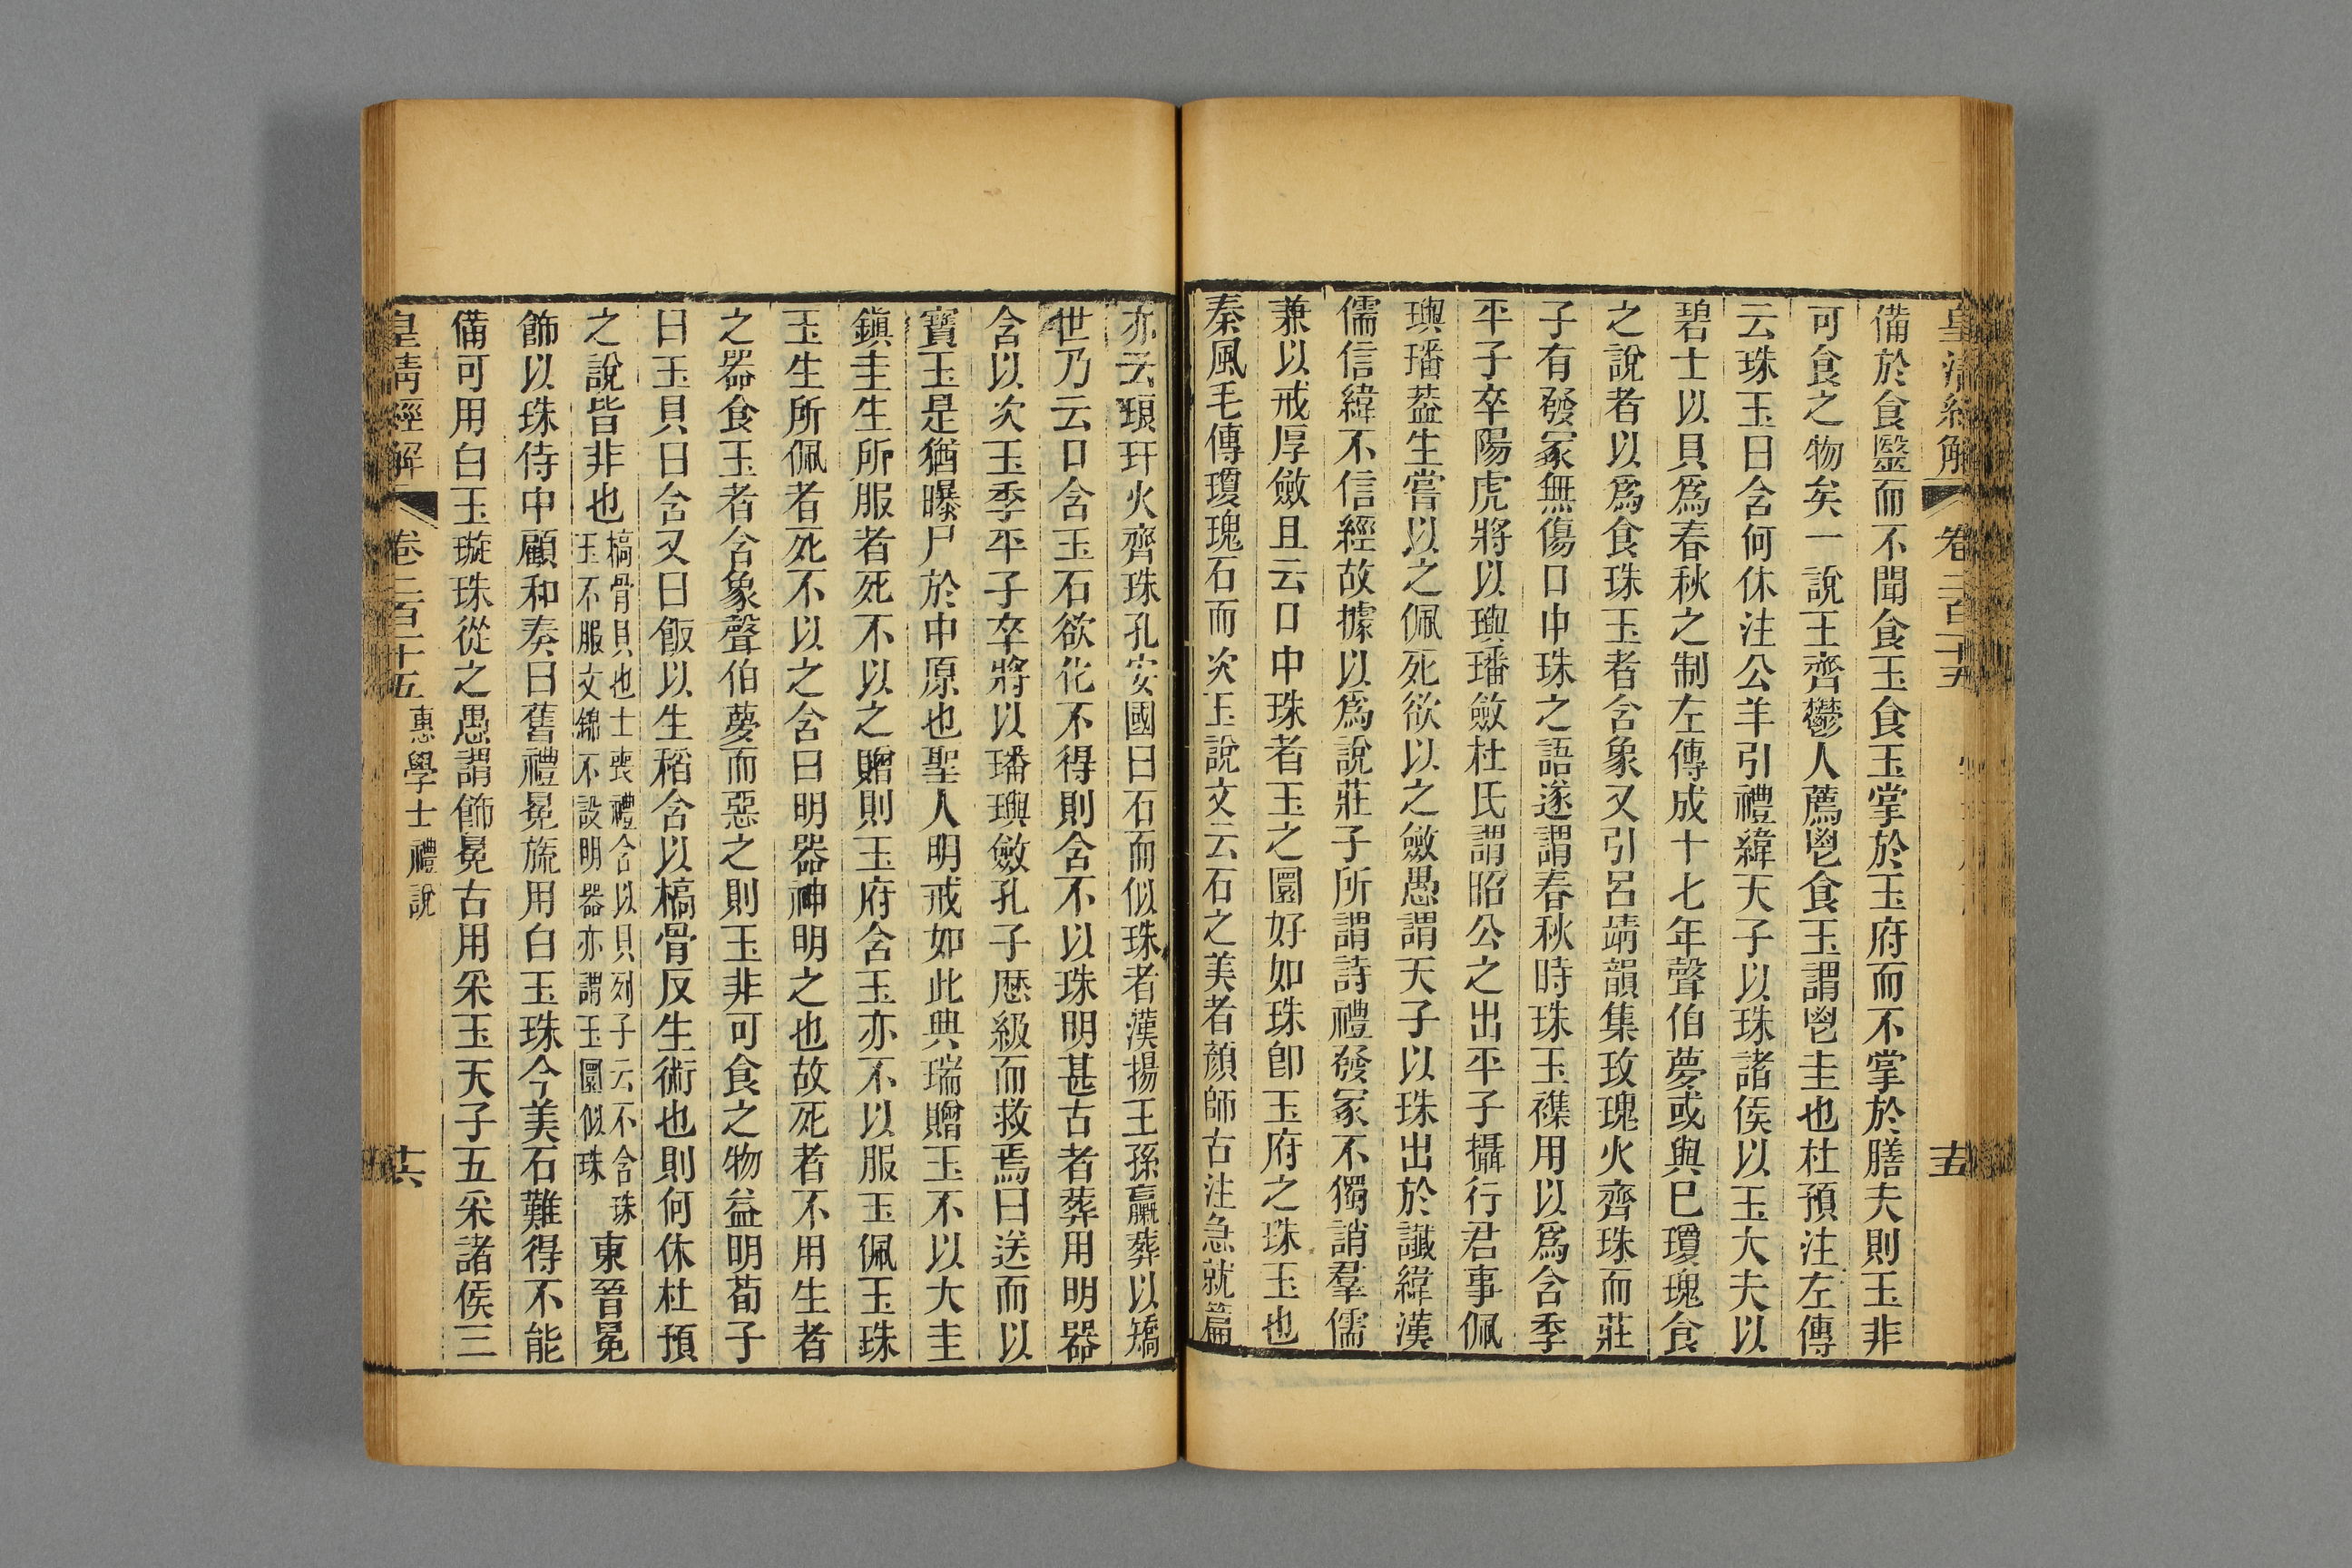 備於食毉而不聞食玉食玉掌於玉府而不掌於膳夫則玉非
可食之物矣一說王齊鬱人薦鬯食玉謂鬯圭也杜預注左傳
云珠玉曰含何休注公羊引禮緯天子以珠諸侯以玉大夫以
碧士以貝爲春秋之制左傳成十七年聲伯夢或與巳瓊瑰食
之說者以爲食珠玉者含象又引呂靖韻集玫瑰火齊珠而莊
子有發冢無傷口中珠之語遂謂春秋時珠玉襍用以爲含季
平子卒陽虎將以璵璠斂杜氏謂昭公之出平子攝行君事佩
璵璠葢生嘗以之佩死欲以之斂愚謂天子以珠出於讖緯漢
儒信緯不信經故據以爲說莊子所謂詩禮發冢不獨誚羣儒
兼以戒厚斂且云口中珠者玉之圜好如珠卽玉府之珠玉也
秦風毛傳瓊瑰石而次玉說文云石之美者顏師古注急就篇
亦云琅玕火齊珠孔安國曰石而似珠者漢揚王孫臝葬以矯
世乃云口含玉石欲化不得則含不以珠明甚古者葬用明器
含以次玉季平子卒將以璠璵斂孔子歷級而救焉曰送而以
寶玉是猶曝尸於中原也聖人明戒如此典瑞贈玉不以大圭
鎭圭生所服者死不以之贈則玉府含玉亦不以服玉佩玉珠
玉生所佩者死不以之含曰明器神明之也故死者不用生者
之器食玉者含象聲伯夢而惡之則玉非可食之物益明荀子
曰玉貝曰含又曰飯以生稻含以槁骨反生術也則何休杜預
之說皆非也槁骨貝也士喪禮含以貝列子云不含珠
玉不服文錦不設明器亦謂玉圜似珠東晉冕
飾以珠侍中顧和奏曰舊禮冕旒用白玉珠今美石難得不能
備可用白玉璇珠從之愚謂飾冕古用采玉天子五采諸侯三
皇清經解 卷二百十五 惠學士禮說 十六